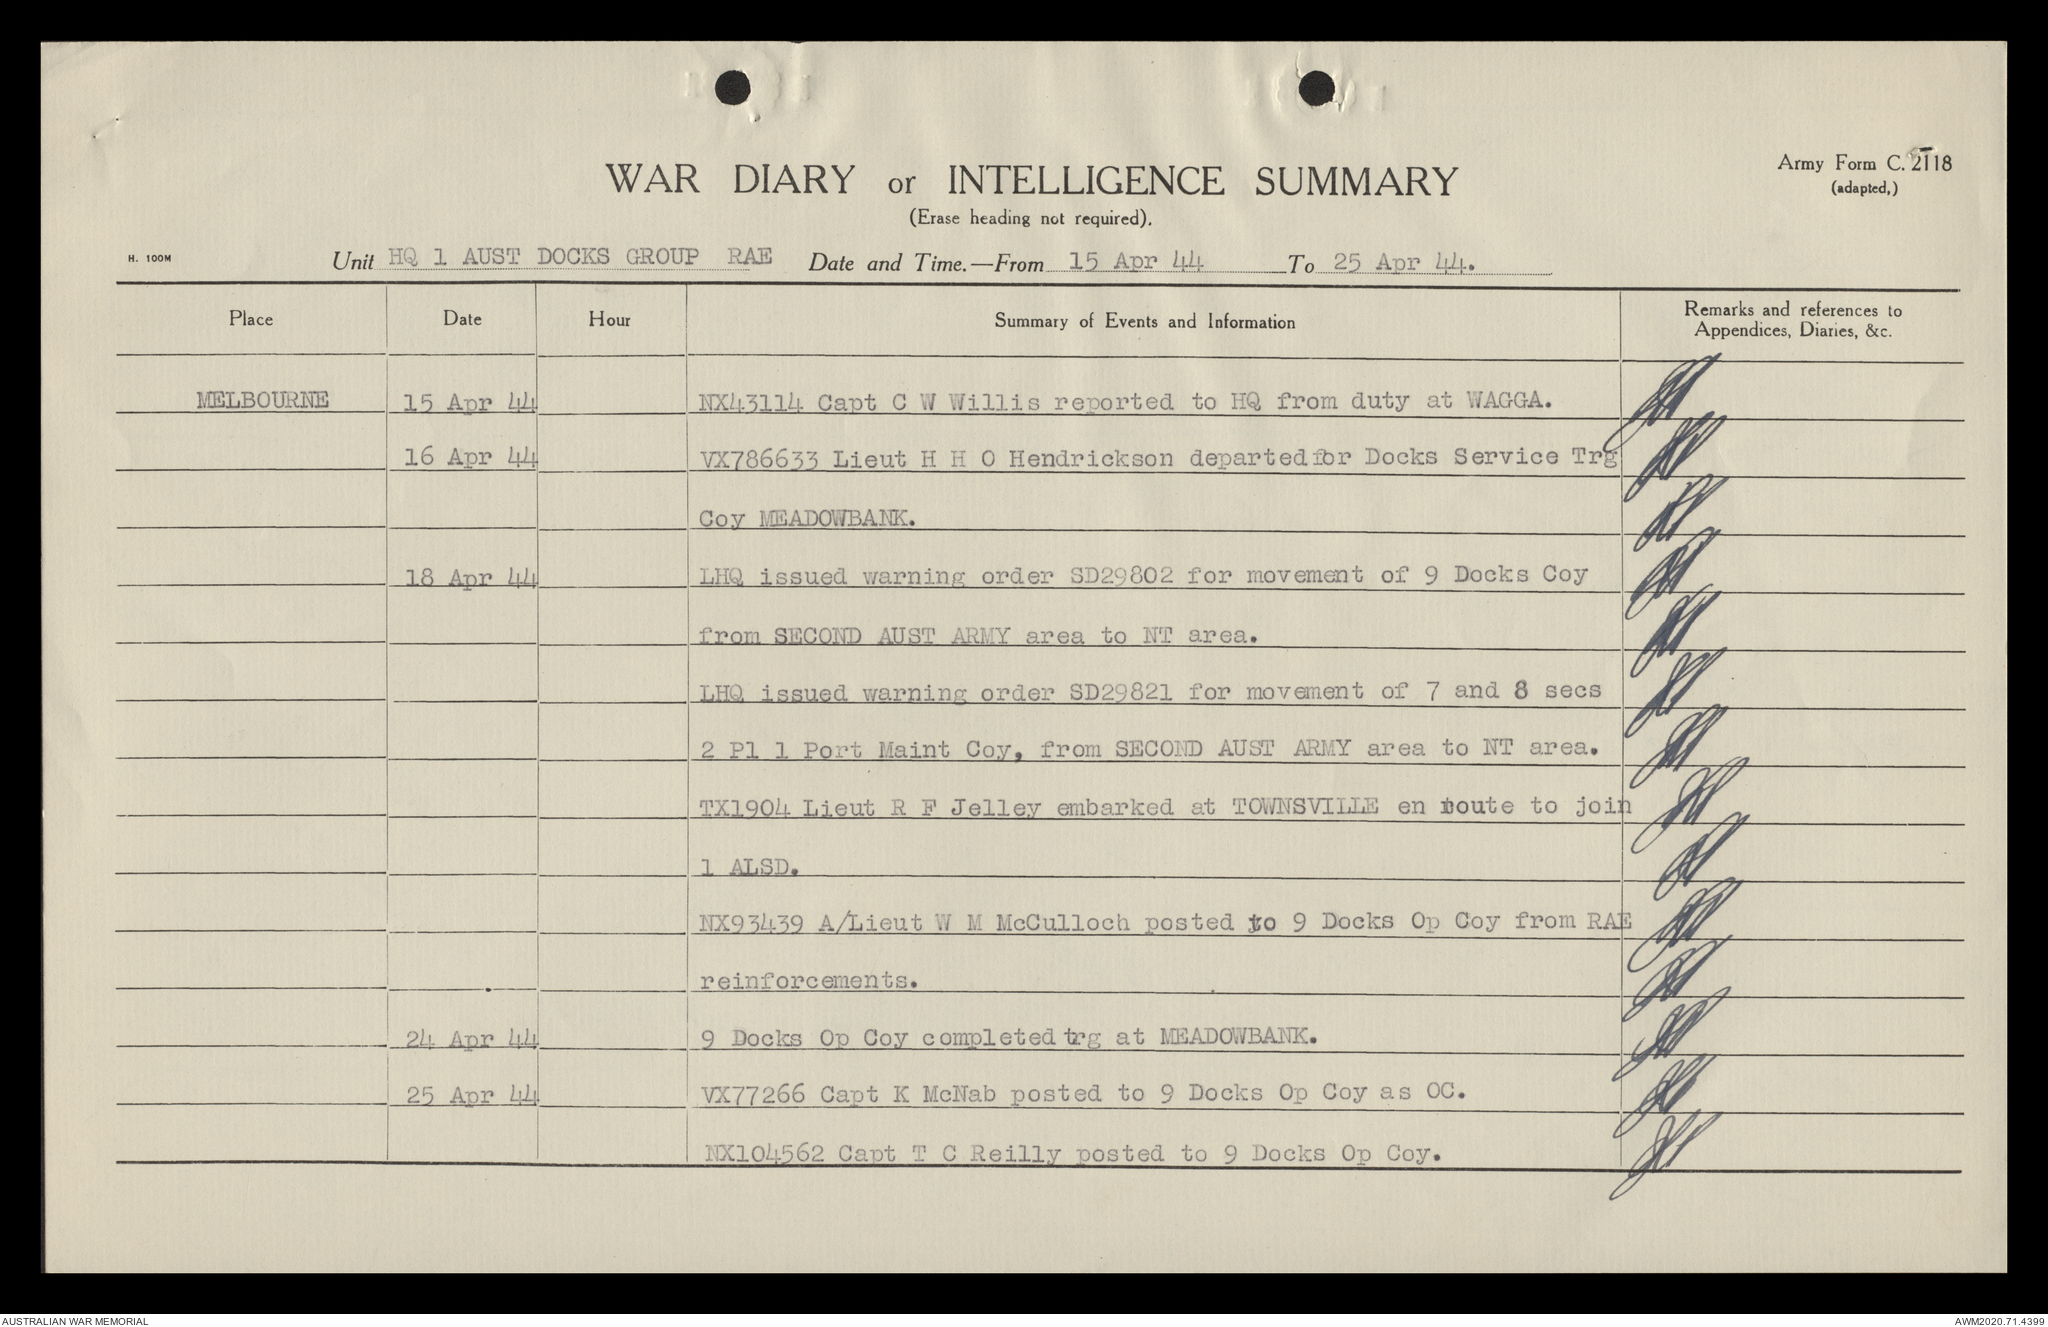 WAR DIARY or INTELLIGENCE SUMMARY
(Erase heading not required).
Army Form C. 2118
(adapted,)
H. 100M
Unit HQ 1 AUST DOCKS GROUP RAE Date and Time.—From 15 Apr 44 To 25 Apr 44.
Place Date Hour Summary of Events and Information Remarks and references to
Appendices, Diaries, &c.
MELBOURNE 15 Apr 44 NX43114 Capt C W Willis reported to HQ from duty at WAGGA.
16 Apr 44 VX786633 Lieut H H O Hendrickson departed for Docks Service Trg
Coy MEADOWBANK.
18 Apr 44 LHQ issued warning order SD29802 for movement of 9 Docks Coy
from SECOND AUST ARMY area to NT area.
LHQ issued warning order SD29821 for movement of 7 and 8 secs
2 Pl 1 Port Maint Coy, from SECOND AUST ARMY area to NT area.
TX1904 Lieut R F Jelley embarked at TOWNSVILLE en route to join
1 ALSD.
NX93439 A/Lieut W M McCulloch posted to 9 Docks Op Coy from RAE
reinforcements.
24 Apr 44 9 Docks Op Coy completed trg at MEADOWBANK.
25 Apr 44 VX77266 Capt K McNab posted to 9 Docks Op Coy as OC.
NX104562 Capt T C Reilly posted to 9 Docks Op Coy.
AUSTRALIAN WAR MEMORIAL
AWM2020.71.4399